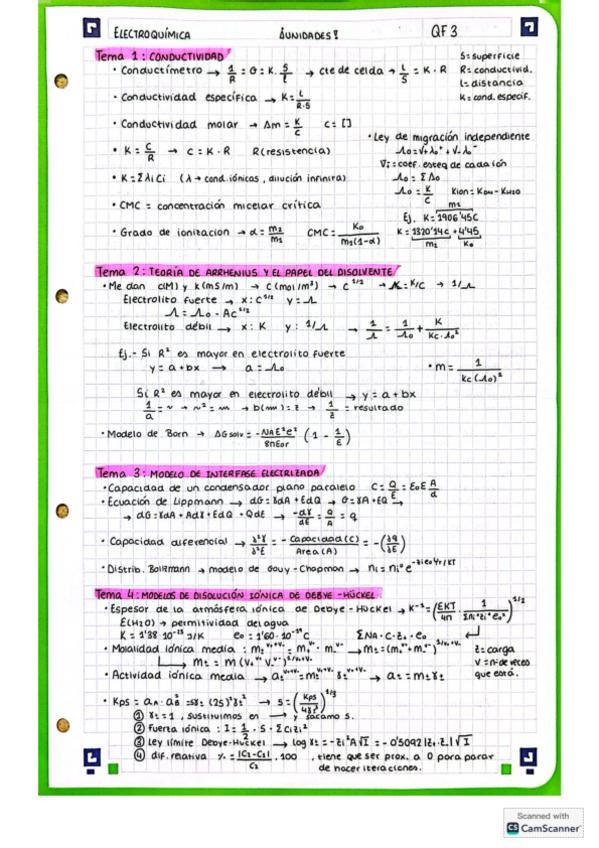 ELECTROQUÍMICA ¡UNIDADES! QF3
Tema 1: CONDUCTIVIDAD
• Conductímetro → 1/R = G = K · S/l → cte de celda → L/S = K · R
S = superficie
R = conductivid.
L = distancia
K = cond. especif.
• Conductividad específica → K = L/R·S
• Conductividad molar → Λm = K/C C = []
• K = C/R → C = K · R R (resistencia)
• K = Σλi Ci (λ → cond. iónicas, dilución infinira)
• CMC = concentración micelar crítica
• Grado de ionización → α = m2/m1 CMC = K0/m1(1-α)
• Ley de migración independiente
Λ0 = V+λ0+ + V-λ0-
Vi = coef. esteq de cada ión
Λ0 = Σ Λ0
Λ0 = K/C Kion = KDN - KH2O
Ej. K = 1906'45C
m1
K = 1320'14C + 4'45
m2 K0
Tema 2: TEORÍA DE ARRHENIUS Y EL PAPEL DEL DISOLVENTE
• Me dan c(M) y k(mS/m) → c(mol/m³) → C^1/2 → Λ = K/C → 1/Λ
Electrolito fuerte → x: C^1/2 y = Λ
Λ = Λ0 - AC^1/2
Electrolito débil → x: K y: 1/Λ → 1/Λ = 1/Λ0 + K/Kc·Λ0²
Ej.- Si R² es mayor en electrolito fuerte
y = a + bx → a = Λ0
• m = 1/Kc(Λ0)²
Si R² es mayor en electrolito débil → y = a + bx
1/a = → b = z → 1/z = resultado
• Modelo de Born → ΔGsolv = -NAZ²e²/8πE0r (1 - 1/E)
Tema 3: MODELO DE INTERFASE ELECTRIZADA
• Capacidad de un condensador plano paralelo C = Q/E = E0E A/d
• Ecuación de Lippmann → dG = γdA + EdQ → G = γA + EQ →
→ dG = γdA + Adγ + EdQ + QdE → -dγ/dE = Q/A = q
• Capacidad diferencial → ∂²γ/∂²E = - Capacidad(C)/Area(A) = -(∂q/∂E)
• Distrib. Boltzmann → modelo de Gouy-Chapman → ni = ni° e^-zie0Ψr/KT
Tema 4: MODELOS DE DISOLUCIÓN IÓNICA DE DEBYE-HÜCKEL
• Espesor de la atmósfera iónica de Debye-Hückel → K⁻¹ = (EKT/4π · 1/Σni°zi²e0²)^1/2
E(H2O) → permitividad del agua
K = 1'38·10⁻²³ J/K e0 = 1'60·10⁻¹⁹C ΣNA·C·z0·e0
• Molalidad iónica media: m±^V++V- = m+^V+ · m-^V- → m± = (m+^V+ m-^V-)^1/V++V-
→ m± = m (V+^V+ V-^V-)^1/V++V-
z = carga
V = nº de veces
que está.
• Actividad iónica media → a±^V++V- = m±^V++V- γ±^V++V- → a± = m±γ±
• Kps = aA · aB² = sγ± (2s)²γ±² → s = (Kps/4γ±³)^1/3
① γ± = 1, sustituimos en → y sacamo s.
② Fuerza iónica: I = 1/2 · S · ΣCizi²
③ Ley límite Debye-Hückel → log γ± = -zi²A√I = -0'5092|z+·z-|√I
④ dif. relativa % = |C2-C1|/C2 · 100, tiene que ser prox. a 0 para parar
de hacer iteraciones.
Scanned with
CS CamScanner